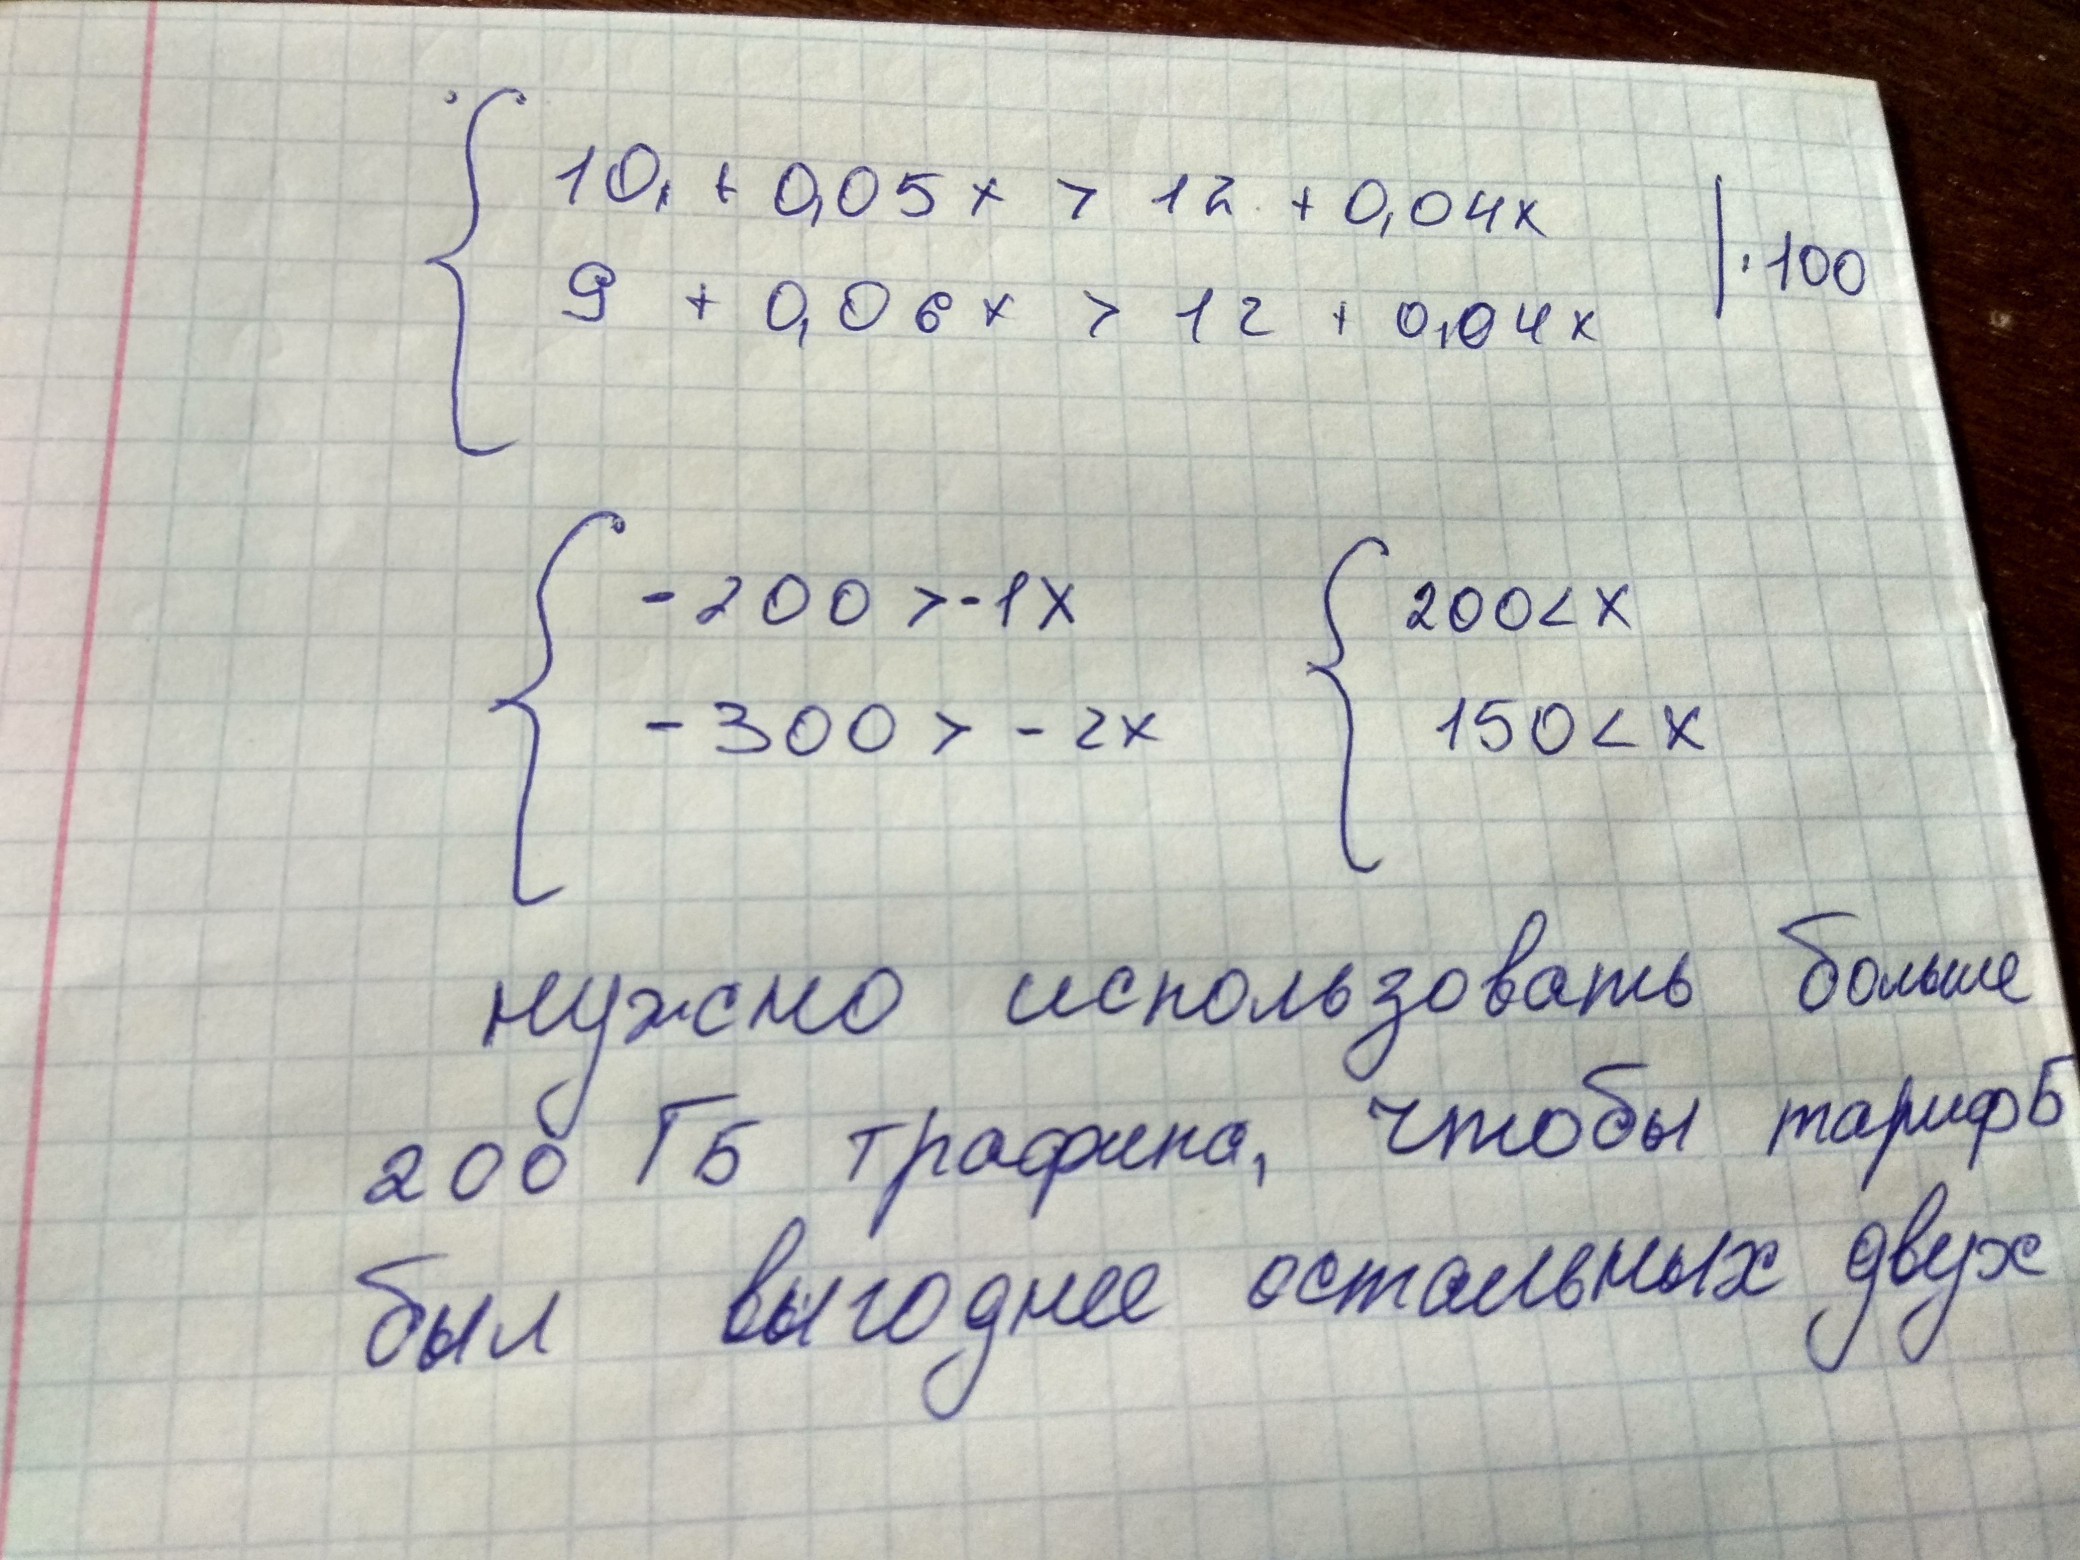 10 + 0,05x > 12 + 0,04x
9 + 0,06x > 12 + 0,04x | · 100
-200 > -1x 200 < x
-300 > -2x 150 < x
нужно использовать больше
200 ГБ трафика, чтобы тариф Б
был выгоднее остальных двух